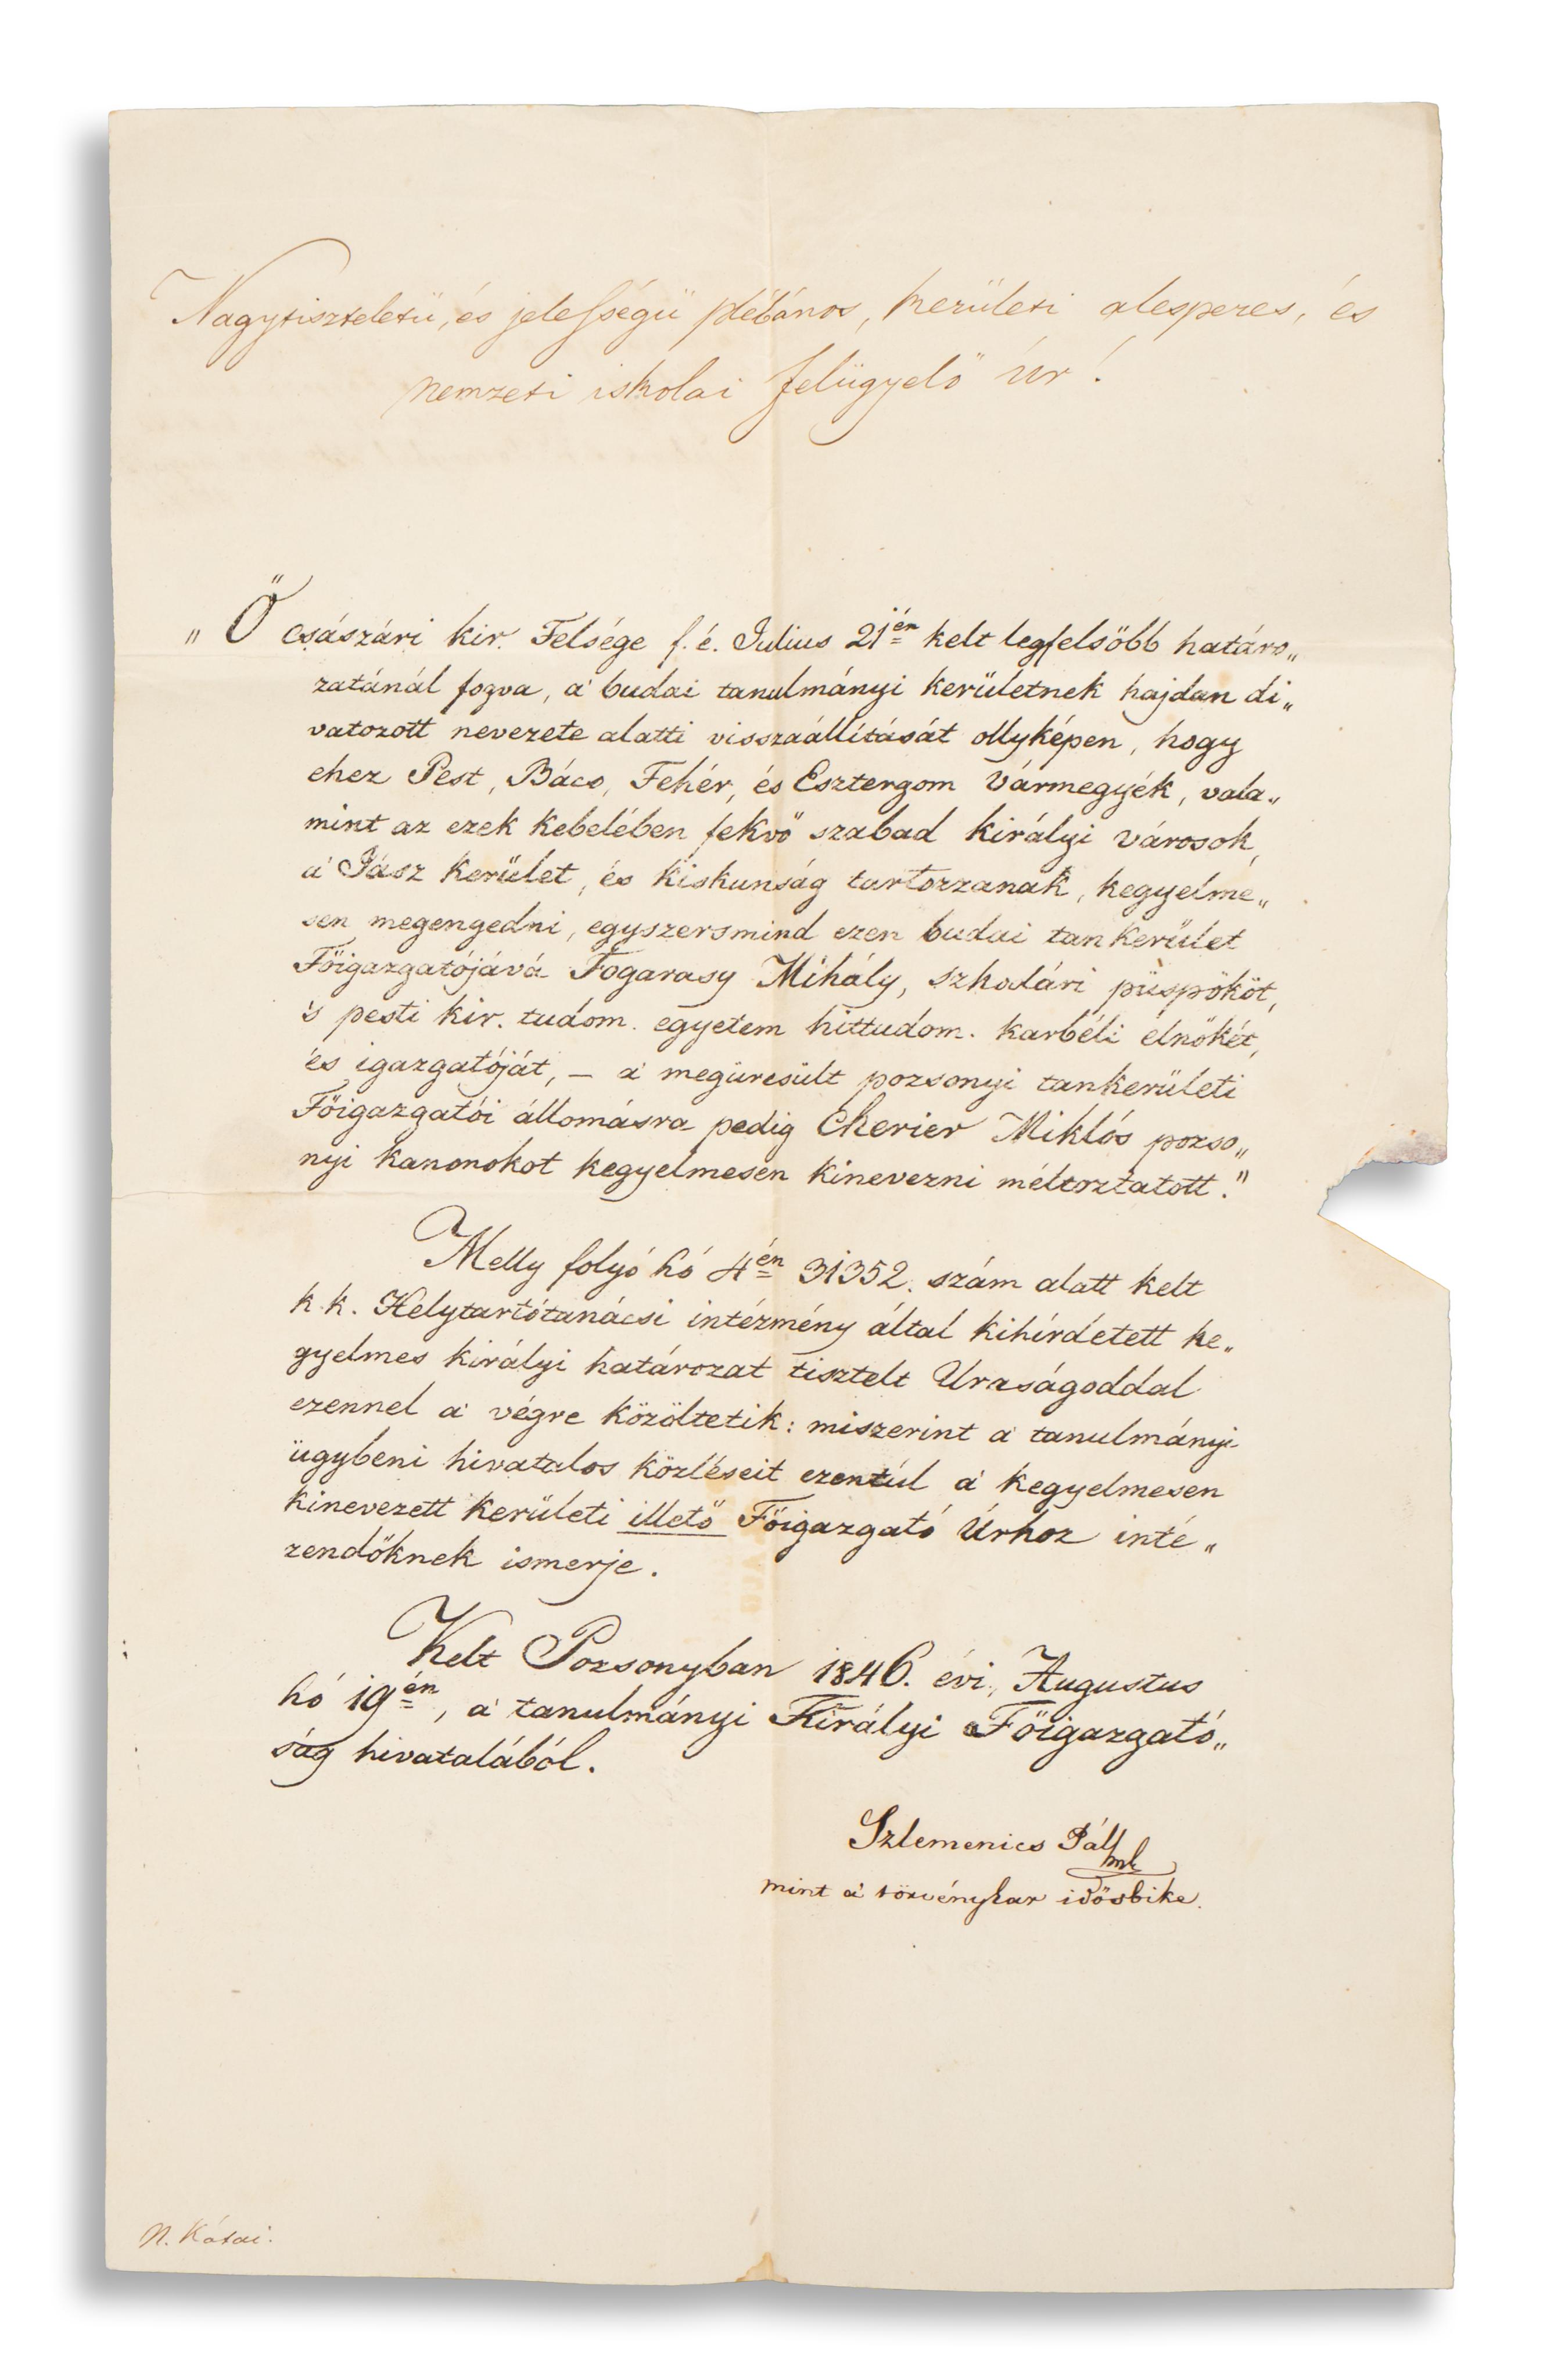 Nagytiszteletü, és jelességü plébános, kerületi alesperes, és
nemzeti iskolai felügyelő úr!
„Ő császári kir. Felsége f. é. Julius 21én kelt legfelsőbb határo„
zatánál fogva, a' budai tanulmányi kerületnek hajdan di„
vatozott nevezete alatti visszaállítását ollyképen, hogy
ehez Pest, Bács, Fehér, és Esztergom Vármegyék, vala„
mint az ezek kebelében fekvő szabad királyi városok,
a' Jász kerület, és kiskunság tartozzanak, kegyelme„
sen megengedni, egyszersmind ezen budai tankerület
Főigazgatójává Fogarasy Mihály, szkodári püspököt,
's pesti kir. tudom. egyetem hittudom. karbéli elnökét,
és igazgatóját, – a' megüresült pozsonyi tankerületi
Főigazgatói állomásra pedig Cherier Miklós pozso„
nyi kanonokot kegyelmesen kinevezni méltóztatott."
Melly folyó hó 4én 31352. szám alatt kelt
k. k. Helytartótanácsi intézmény által kihírdetett ke„
gyelmes királyi határozat tisztelt Uraságoddal
ezennel a' végre közöltetik: miszerint a' tanulmányi
ügybeni hivatalos közléseit ezentúl a' kegyelmesen
kinevezett kerületi illető Főigazgató Úrhoz inté„
zendőknek ismerje.
Kelt Pozsonyban 1846. évi, Augustus
hó 19én, a' tanulmányi Királyi Főigazgató„
ság hivatalából.
Szlemenics Pál mk
mint a' törvénykar idősbike.
N. Kátai.